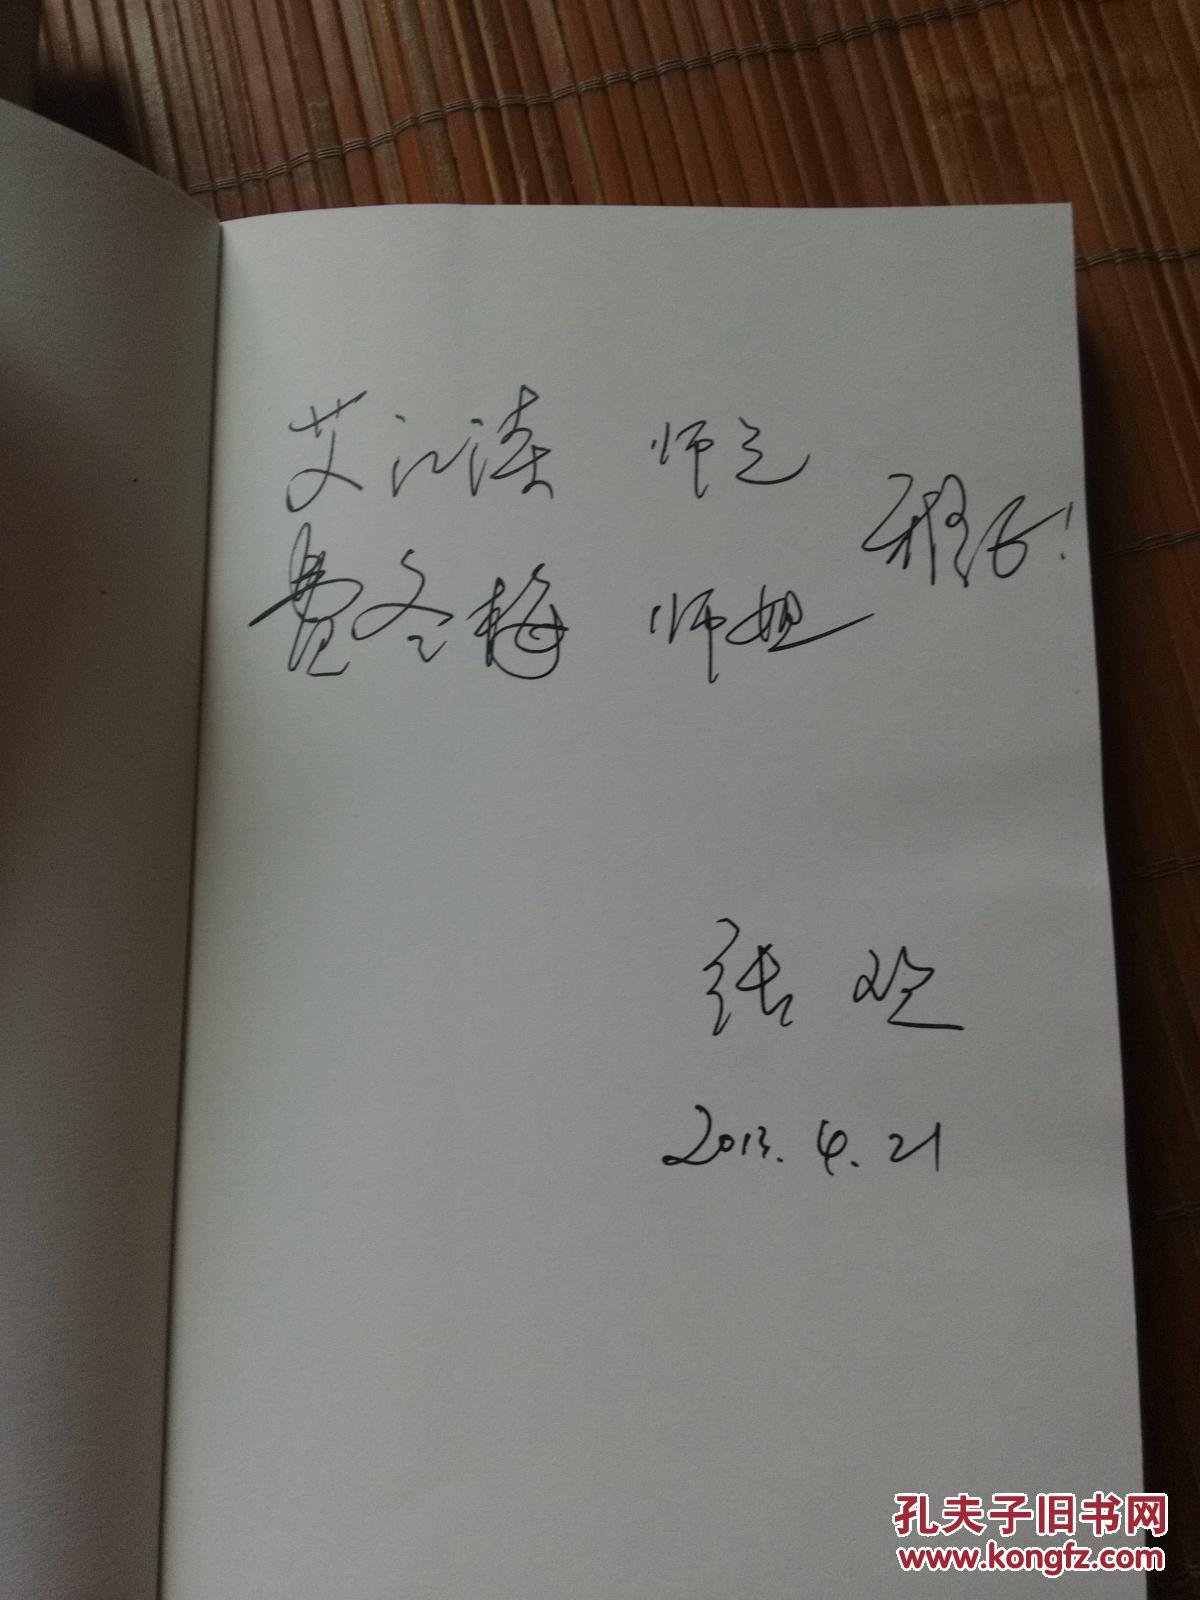 艾江涛 师兄
费冬梅 师姐
雅正!
张欢
2013.4.21
孔夫子旧书网
www.kongfz.com